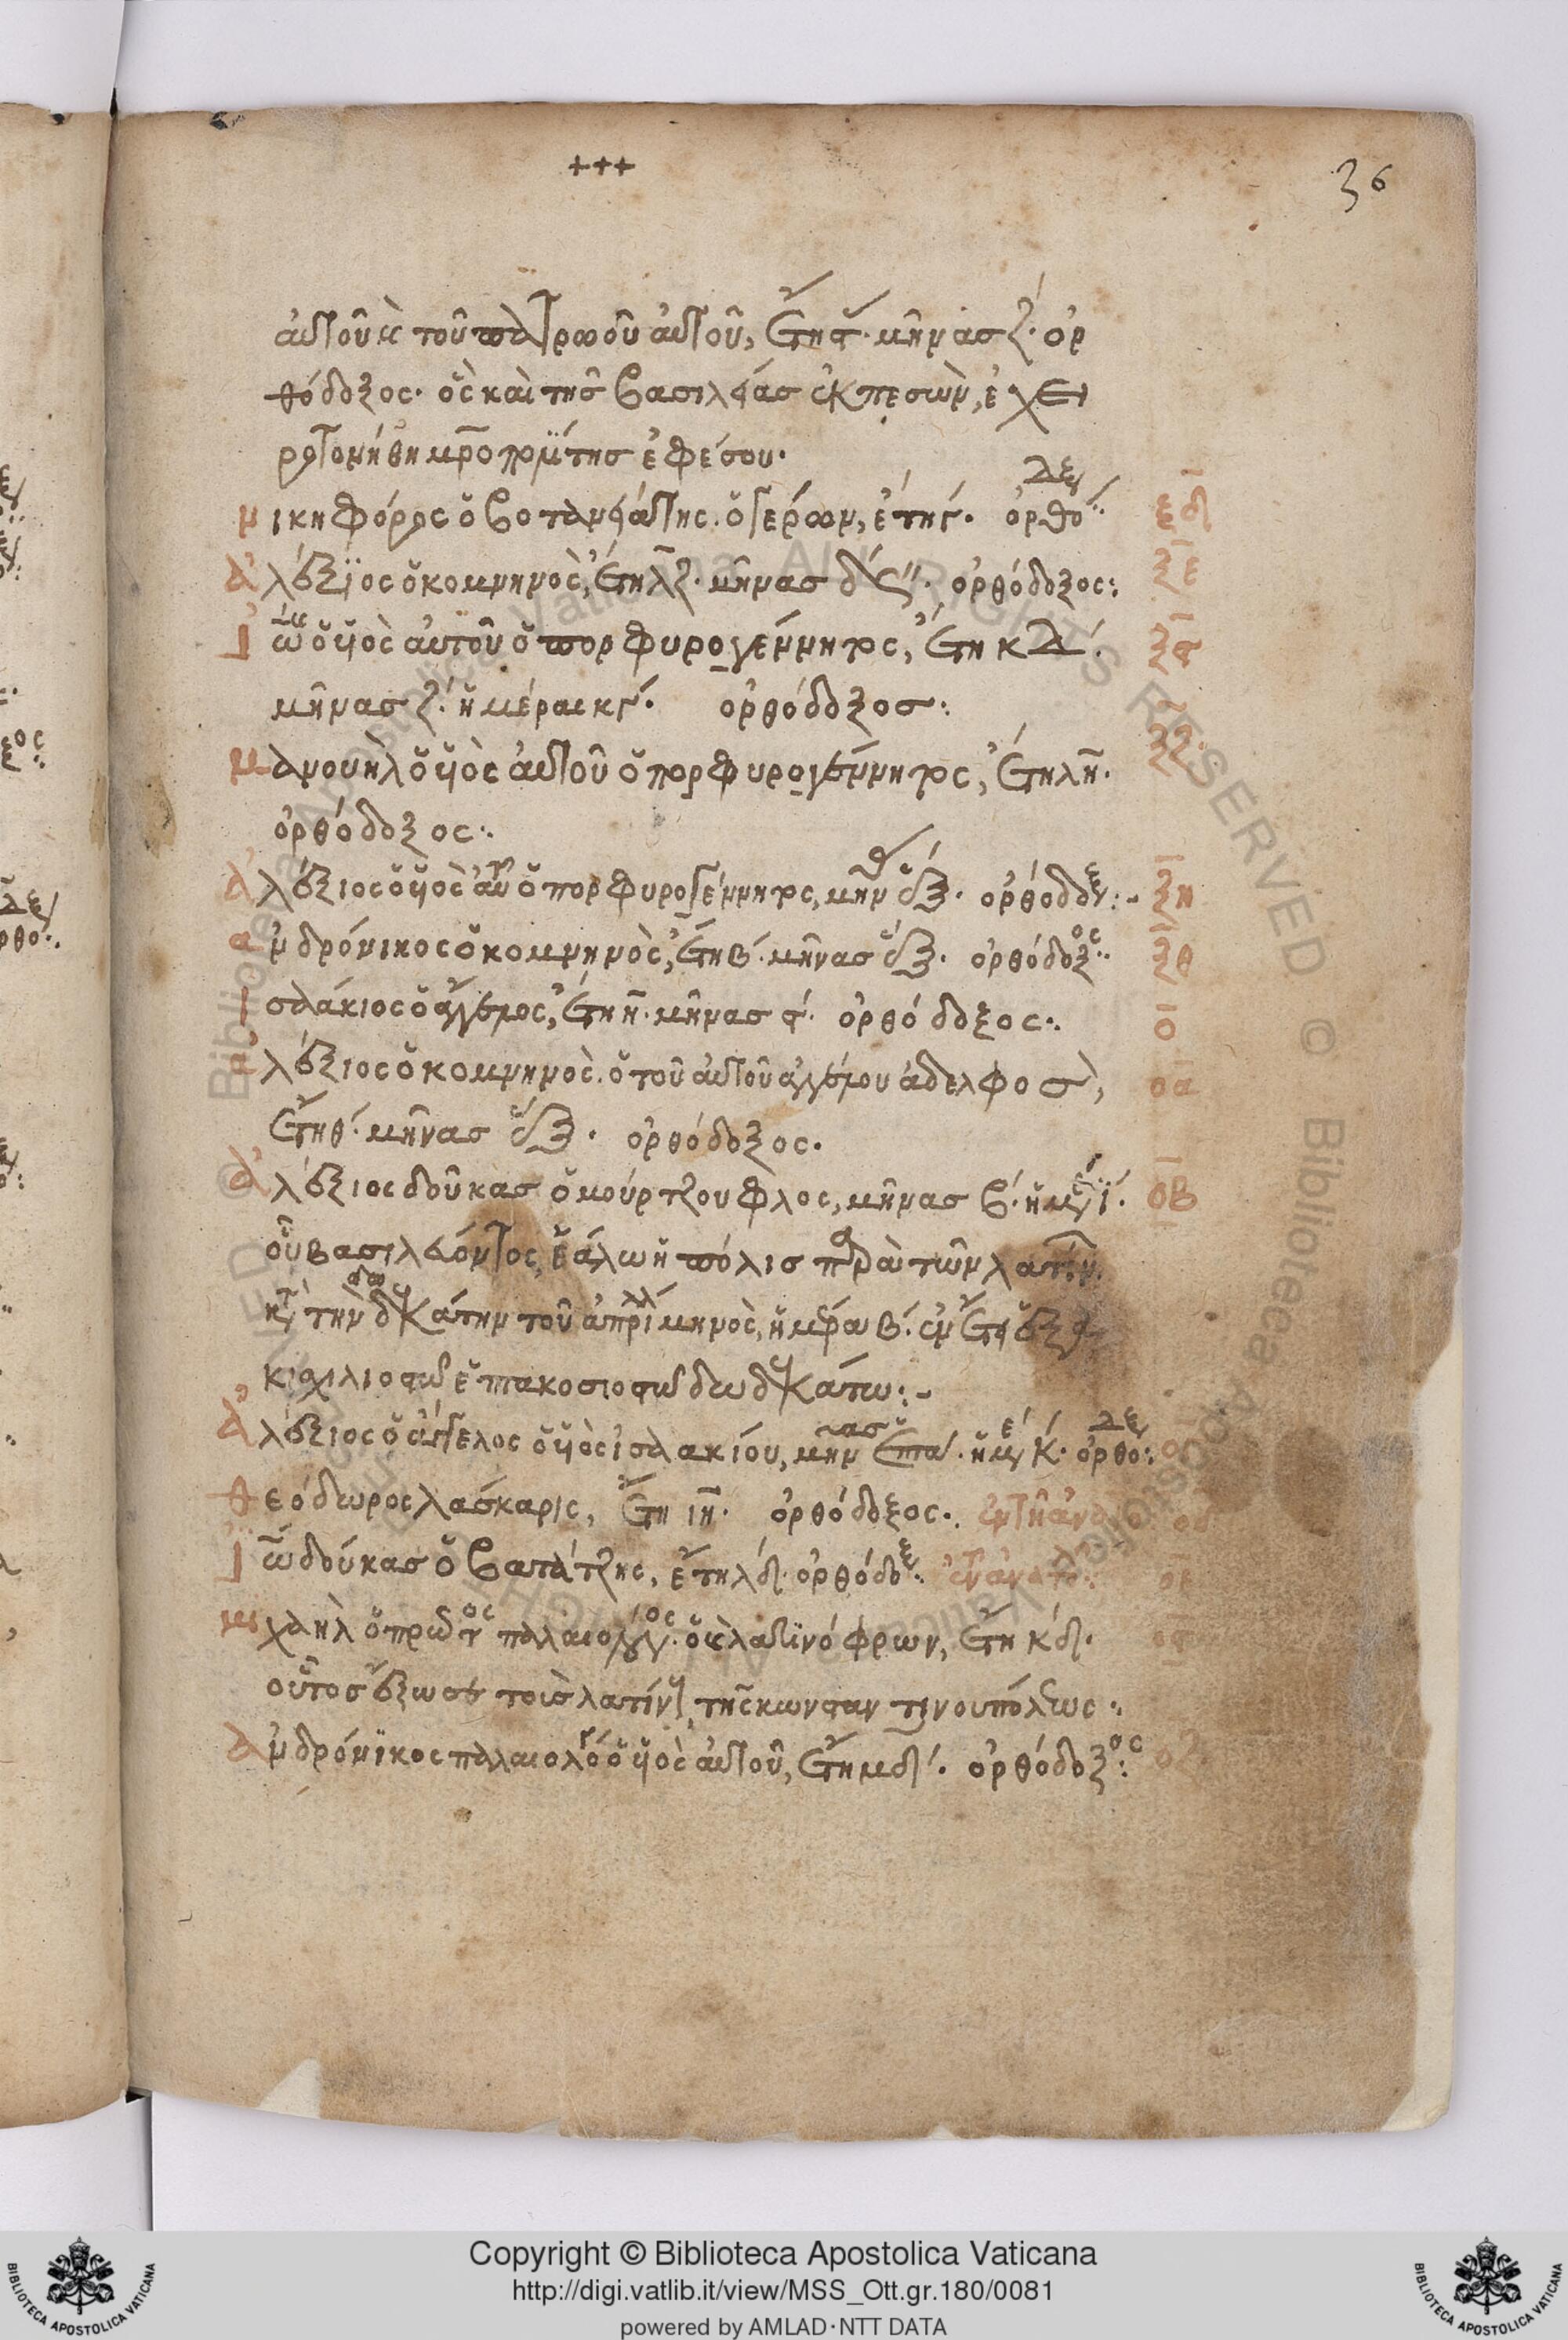 +++
36
αὐτοῦ κ τοῦ πατρωοῦ αὐτοῦ, ἔτη ϛ· μῆνας ζ´· ὀρ
θόδοξος· ὃς καὶ τῆς βασιλείας ἐκπεσὼν, ἐχει
ροτονήθη μρο πολίτης ἐφέσου·
νικηφόρος ὁ βοτανειάτης. ὁ γέρων, ἔτη γ´· ὀρθόδξ ξδ
ἀλέξϊος ὁ κομνηνὸς, ἔτη λζ· μῆνας δ´ ϛ´´· ὀρθόδοξος: ξε
ἰω ὁ ὑϊὸς αὐτοῦ ὁ πορφυρογέννητος, ἔτη κδ´·
μῆνας ζ´· ἡμέραι κγ´· ὀρθόδοξος: ξϛ
μανουὴλ ὁ ὑϊὸς αὐτοῦ ὁ πορφυρογέννητος, ἔτη λη· ξζ
ὀρθόδοξος:
ἀλέξιος ὁ ὑϊὸς αὐτοῦ ὁ πορφυρογέννητος, μῆν ὀρθόδοξ:- ξη
ἀνδρόνικος ὁ κομνηνὸς, ἔτη β´· μῆνας ὀρθόδοξος: ξθ
ἰσαάκιος ὁ ἄγγελος, ἔτη η· μῆνας ϛ´· ὀρθόδοξος: ο
ἀλέξιος ὁ κομνηνὸς. ὁ τοῦ αὐτοῦ ἀγγέλου ἀδελφος, οα
ἔτη θ´· μῆνας ὀρθόδοξος·
ἀλέξιος δοῦκας ὁ μούρτζουφλος, μῆνας β´· ἡμέ ϊ´· οβ
οὗ βασιλεύοντος, ἑάλω ἡ πόλις παρὰ τῶν λατίν
κτ τὴν δωδεκάτην τοῦ ἀπριλλί μηνὸς, ἡμέρα β´· ἐν ἔτει ἑξα
κιχιλιοστῶ ἑπτακοσιοστῶ δωδεκάτω:-
ἀλέξιος ὁ ἄγγελος ὁ ὑϊὸς ἰσαακίου, μῆνας ἡμέ κ´· ὀρθοδξ:
θεόδωρος λάσκαρις, ἔτη ιη· ὀρθόδοξος· ἐν τῆ
ἰω δούκας ὁ βατάτζης, ἔτη λδ· ὀρθόδοξ:
μιχαὴλ ὁ πρῶτος παλαιολόγος· ὁ κ λατϊνόφρων, ἔτη κδ·
οὗτος ἔξωσε τοὺς λατίνους τῆς κωνσταντινουπόλεως:
ἀνδρόνϊκος παλαιολόγο ὁ ὑϊὸς αὐτοῦ, ἔτη μδ´· ὀρθόδοξος: οζ
© Biblioteca Apostolica Vaticana ALL RIGHTS RESERVED
Copyright © Biblioteca Apostolica Vaticana
http://digi.vatlib.it/view/MSS_Ott.gr.180/0081
powered by AMLAD·NTT DATA
BIBLIOTECA APOSTOLICA VATICANA
BIBLIOTECA APOSTOLICA VATICANA